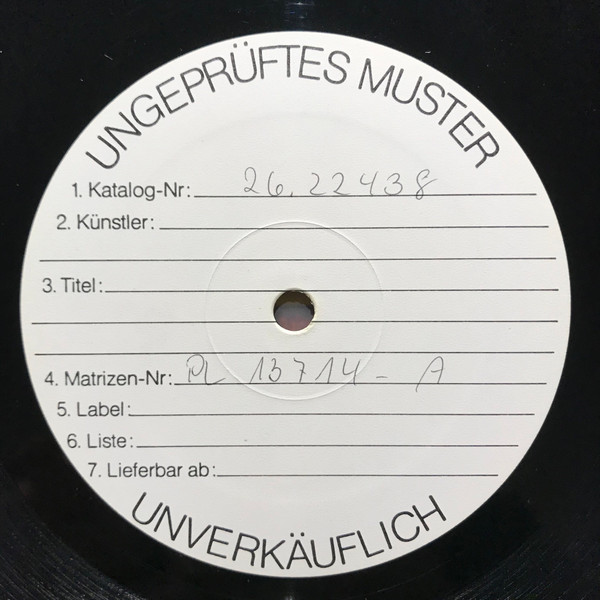 UNGEPRÜFTES MUSTER
1. Katalog-Nr: 26.22438
2. Künstler:
3. Titel:
4. Matrizen-Nr: PL 13714 - A
5. Label:
6. Liste:
7. Lieferbar ab:
UNVERKÄUFLICH